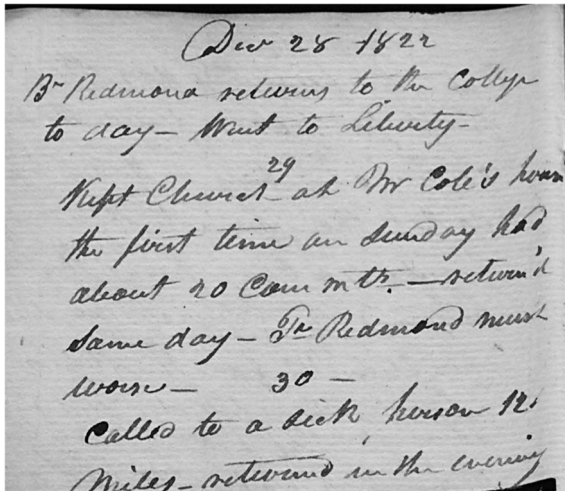 Dec 28 1822
Br Redmond returns to the College
to day - Went to Liberty -
29
Kept Church - at Mr Cole's house
the first time on Sunday had
about 20 Commts. - return'd
same day - Fr Redmond much
worse - 30 -
Called to a sick person 12
Miles - returned in the evening